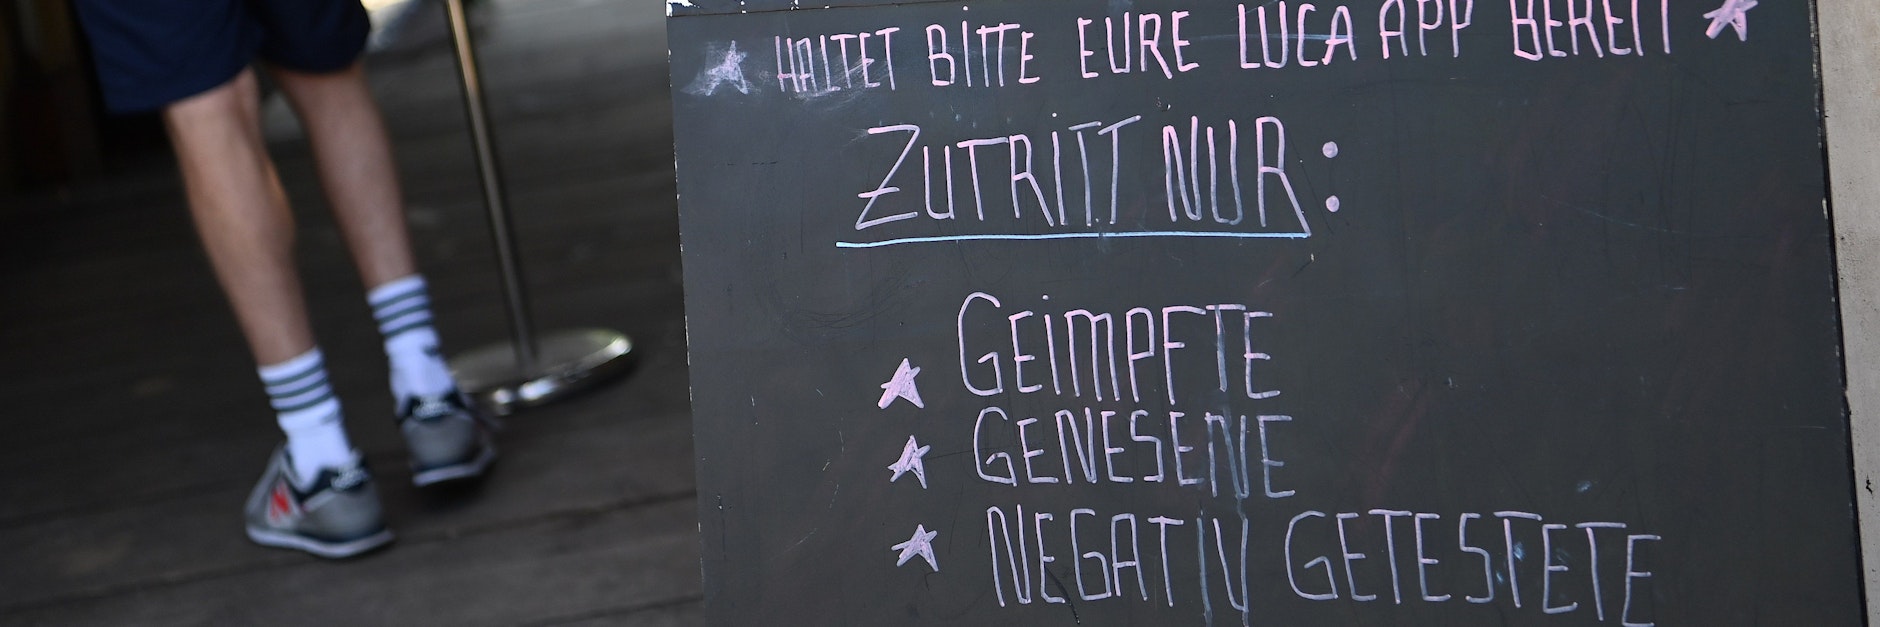 HALTET BITTE EURE LUCA APP BEREIT
ZUTRITT NUR:
GEIMPFTE
GENESENE
NEGATIV GETESTETE